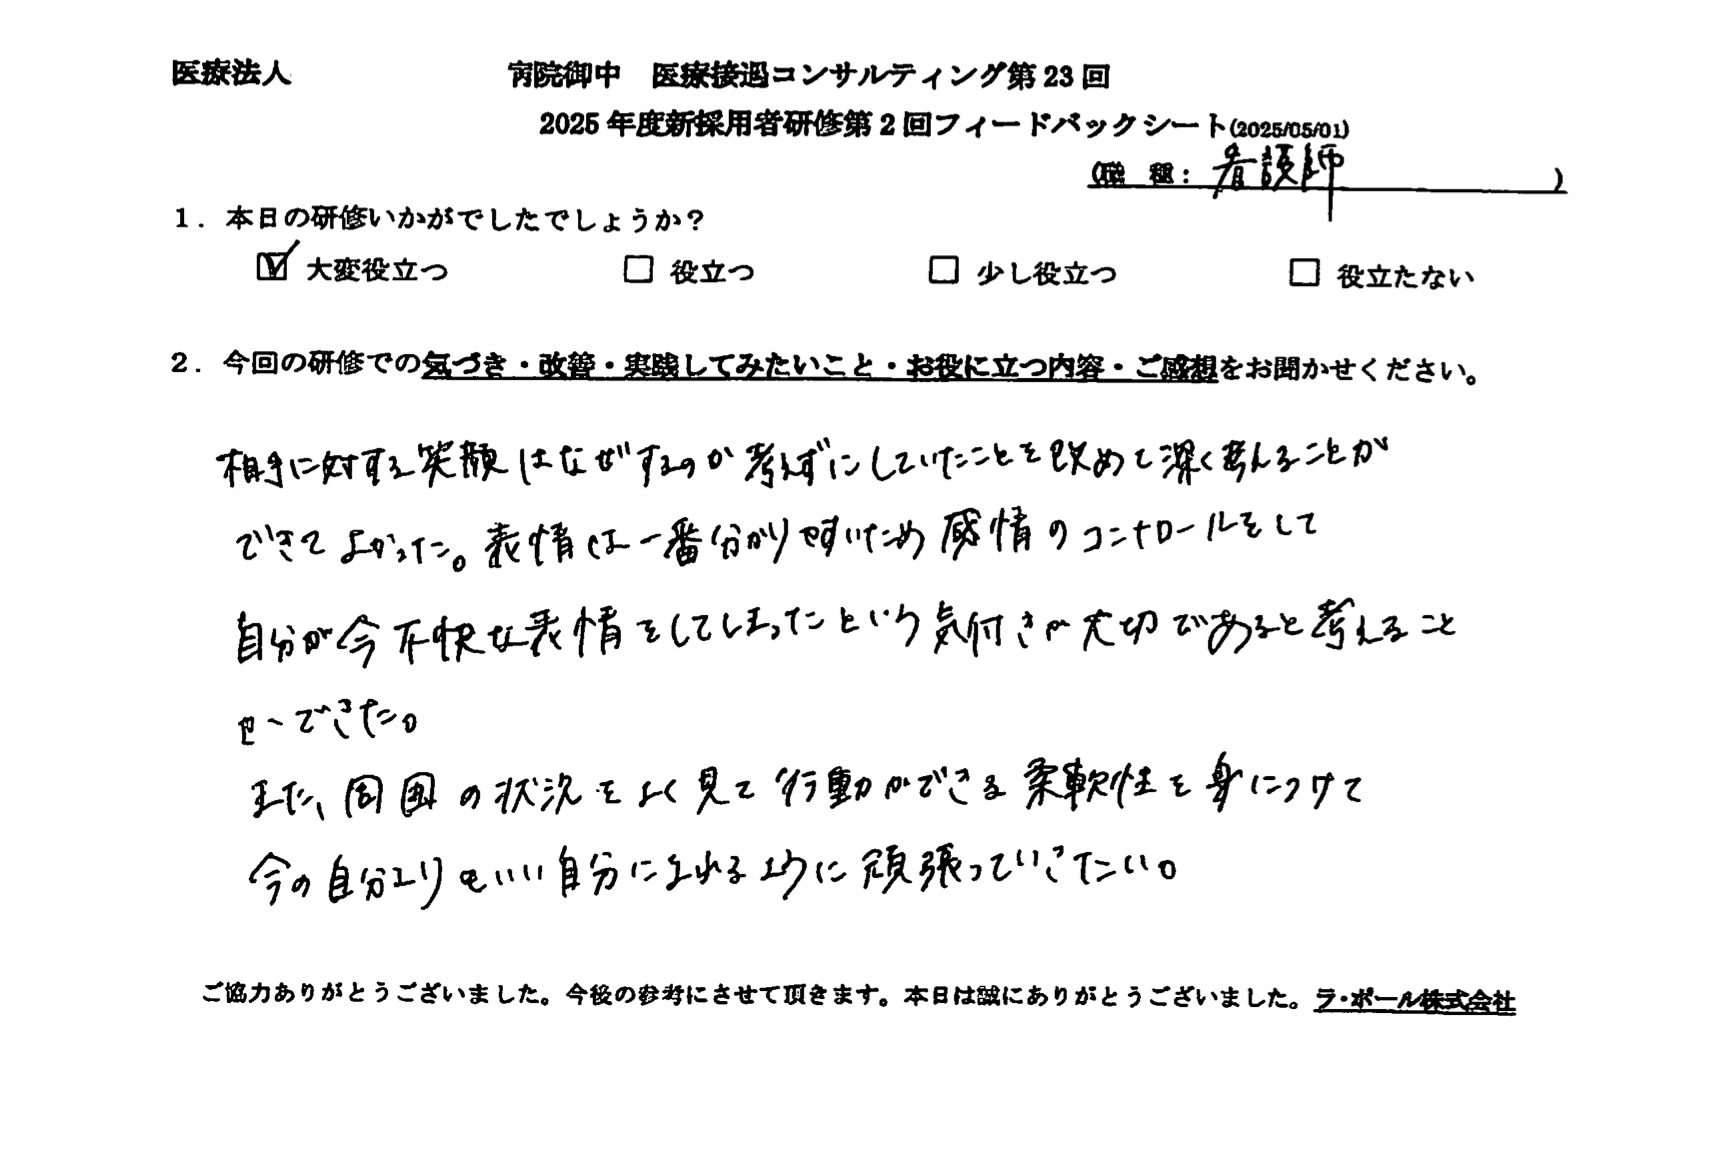 医療法人 病院御中 医療接遇コンサルティング第23回
2025年度新採用者研修第2回フィードバックシート(2025/05/01)
(職 種: 看護師 )
1. 本日の研修いかがでしたでしょうか?
☑ 大変役立つ □ 役立つ □ 少し役立つ □ 役立たない
2. 今回の研修での気づき・改善・実践してみたいこと・お役に立つ内容・ご感想をお聞かせください。
相手に対する笑顔はなぜするのか考えずにしていたことを改めて深く考えることが
できてよかった。表情は一番分かりやすいため感情のコントロールをして
自分が今不快な表情をしてしまったという気付きが大切であると考えること
もできた。
また、周囲の状況をよく見て行動ができる柔軟性を身につけて
今の自分よりもいい自分になれるように頑張っていきたい。
ご協力ありがとうございました。今後の参考にさせて頂きます。本日は誠にありがとうございました。ラ・ポール株式会社